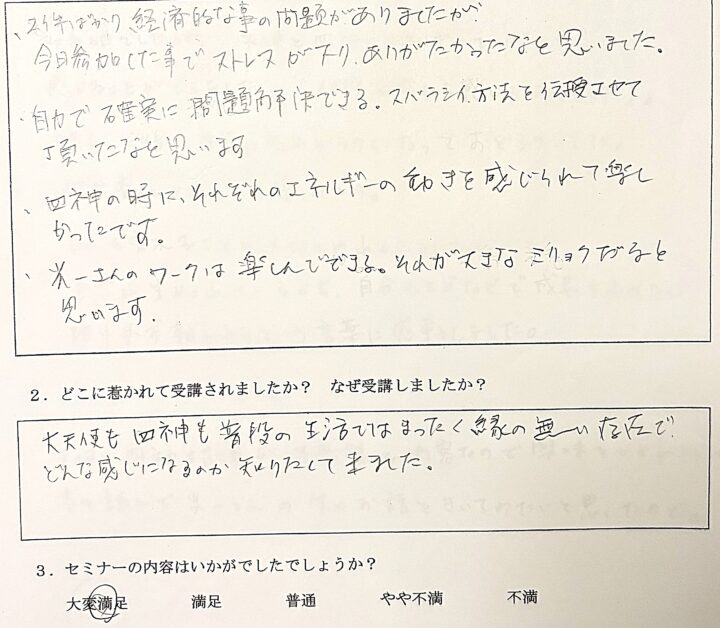 、2件ばかり 経済的な事の問題がありましたが
今日参加した事で ストレスが下り、ありがたかったなと思いました。
・自力で 確実に 問題解決できる。スバラシイ方法を伝授させて
頂いたなと思います
、四神の時に、それぞれのエネルギーの 動きを感じられて楽し
かったです。
・光一さんのワークは 楽しんでできる。それが大きな ミリョクだなと
思います。
2．どこに惹かれて受講されましたか？　なぜ受講しましたか？
大天使も 四神も 普段の 生活ではまったく縁の無い存在で
どんな感じになるのか 知りたくて来ました。
3．セミナーの内容はいかがでしたでしょうか？
大変満足　満足　普通　やや不満　不満